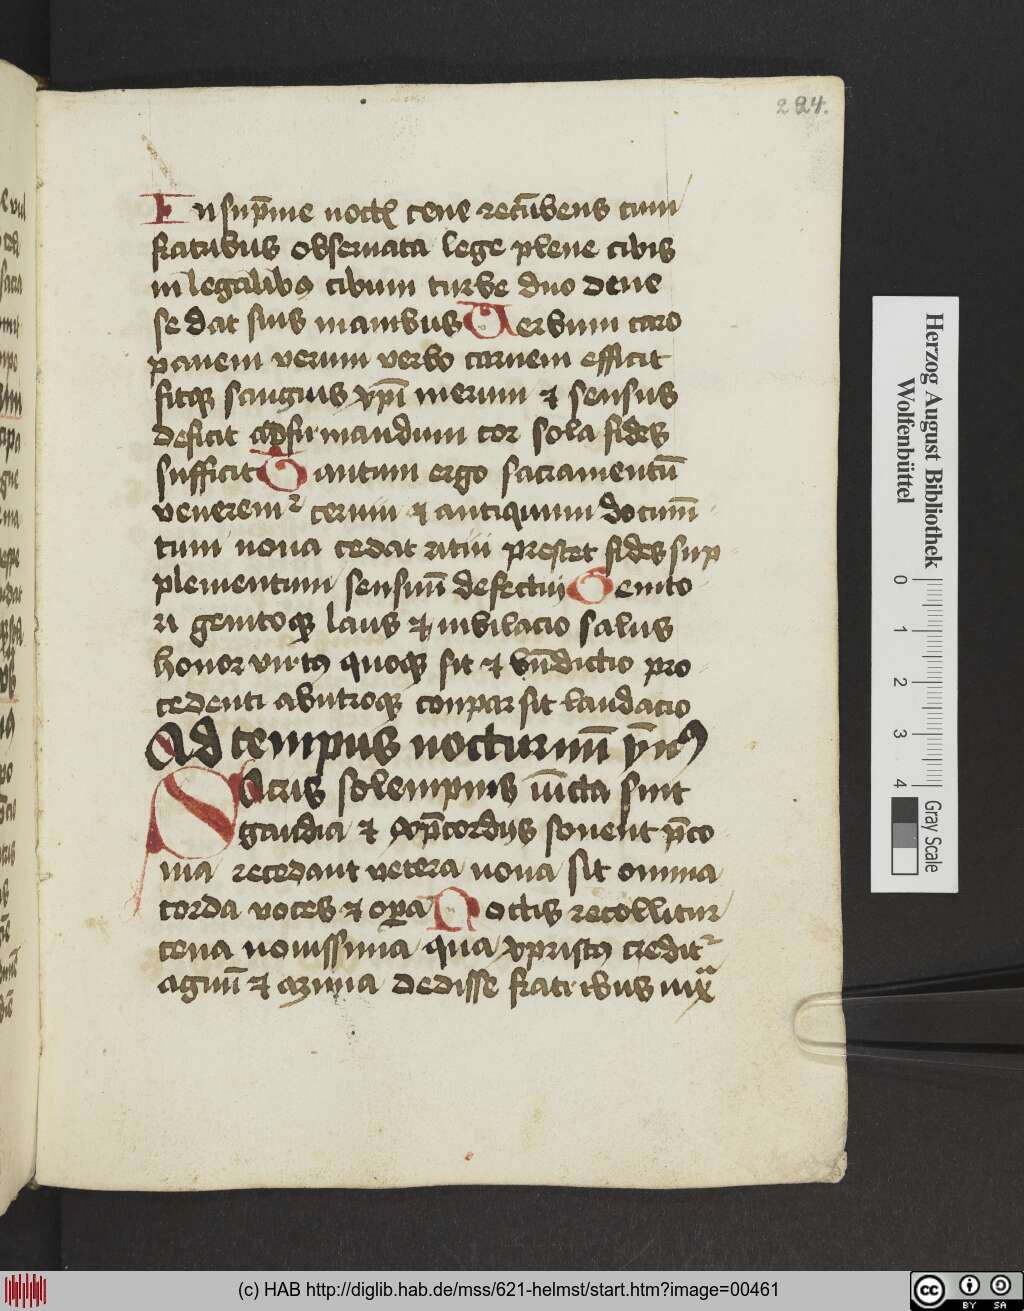 284.
In sup̄me noctꝭ cene recūbens cum
fratribus obseruata lege plene cibis
in legalibꝰ cibum turbe duo dene
se dat suis manibus Verbum caro
panem verum verbo carnem efficit
fitqꝫ sanguis xp̄i merum ⁊ sensus
deficit ad firmandum cor sola fides
sufficit Tantum ergo sacramentū
veneremᷣ cernui ⁊ antiquum docum̄
tum nouo cedat ritui prestet fides sup
plementum sensuū defectui Genito
ri genitoqꝫ laus ⁊ iubilacio salus
honor virtꝰ quoqꝫ sit ⁊ bn̄dictio pro
cedenti abutroqꝫ conpar sit laudacio
Ad tempus nocturnū ymnꝰ
Sacris solempniis iūcta sint
gaudia ⁊ ex p̄cordiis sonent p̄co
nia recedant vetera noua sit omnia
corda voces ⁊ oꝑa Noctis recollitur
cena nouissima qua xpristꝰ creditᷣ
agnū ⁊ azima dedisse fratribus iuxᵃ
Herzog August Bibliothek
Wolfenbüttel
0 1 2 3 4
Gray Scale
(c) HAB http://diglib.hab.de/mss/621-helmst/start.htm?image=00461
cc BY SA